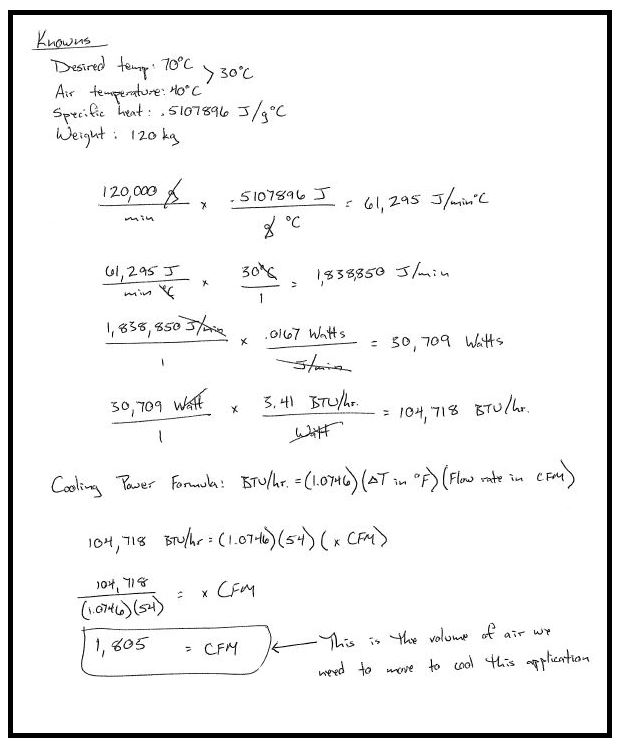 Knowns
Desired temp: 70°C > 30°C
Air temperature: 40°C
Specific heat: .5107896 J/g°C
Weight: 120 kg
120,000 g / min x .5107896 J / g °C = 61,295 J/min°C
61,295 J / min °C x 30°C / 1 = 1,838,850 J/min
1,838,850 J/min / 1 x .0167 Watts / J/min = 30,709 Watts
30,709 Watt / 1 x 3.41 BTU/hr. / Watt = 104,718 BTU/hr.
Cooling Power Formula: BTU/hr. = (1.0746)(ΔT in °F)(Flow rate in CFM)
104,718 BTU/hr = (1.0746)(54)(x CFM)
104,718 / (1.0746)(54) = x CFM
1,805 = CFM ← This is the volume of air we
need to move to cool this application